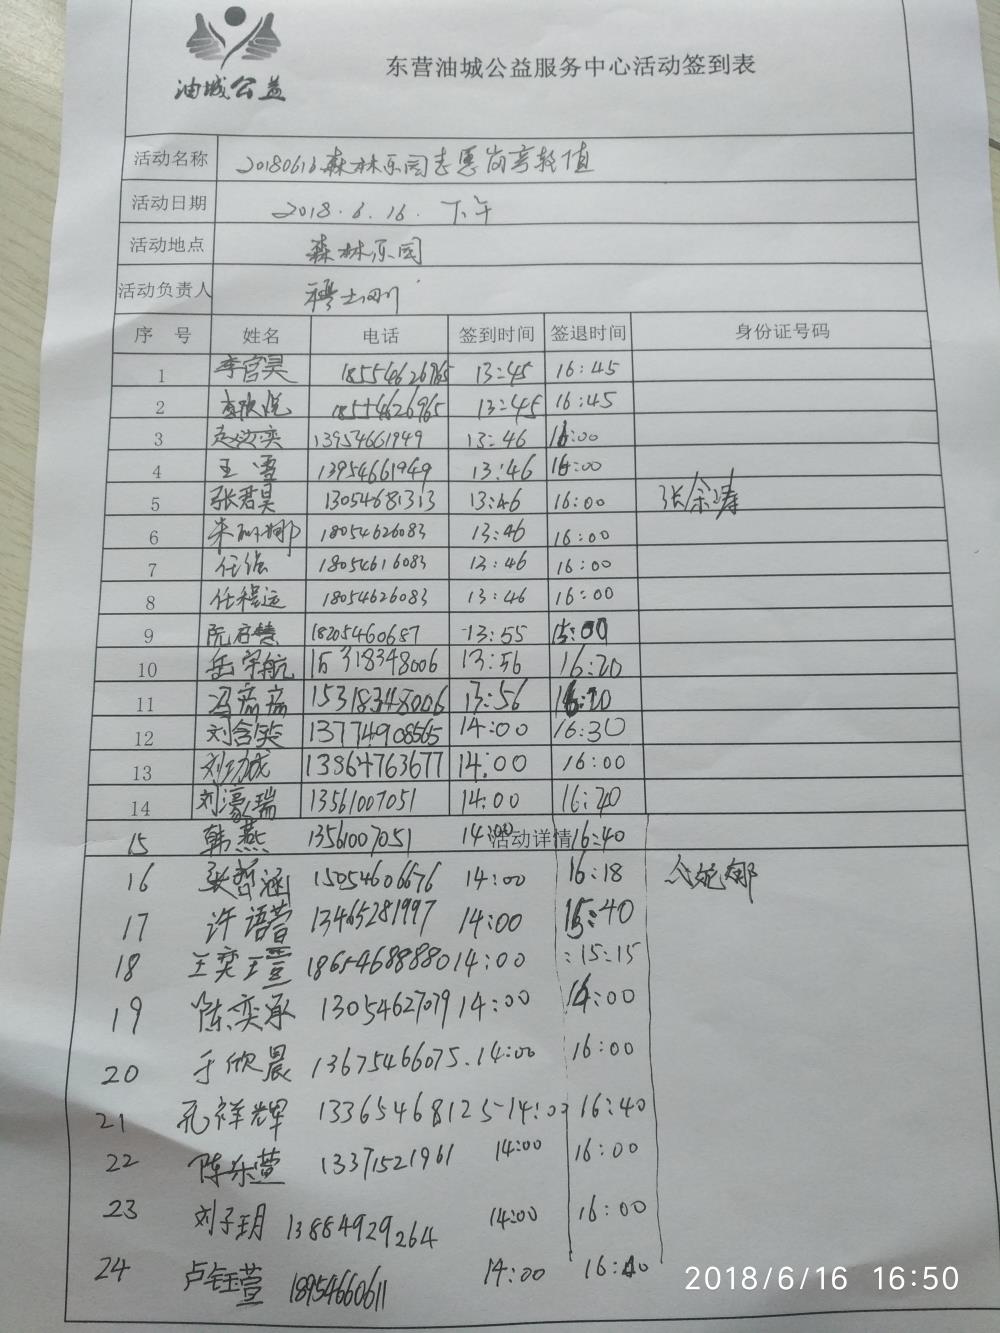 油城公益
东营油城公益服务中心活动签到表
活动名称 20180616森林乐园志愿岗亭轮值
活动日期 2018.6.16. 下午
活动地点 森林乐园
活动负责人 穆士刚
序 号 姓名 电话 签到时间 签退时间 身份证号码
1 李官昊 18554626965 13:45 16:45
2 18554626965 13:45 16:45
3 13954661949 13:46 16:00
4 王雪 13954661949 13:46 16:00
5 张君昊 13054681313 13:46 16:00 张余涛
6 朱丽娜 18054626083 13:46 16:00
7 任强 18054616083 13:46 16:00
8 任程运 18054626083 13:46 16:00
9 阮 18205460687 13:55 15:00
10 岳宇航 15318348006 13:56 16:20
11 冯 15318348006 13:56 16:20
12 刘含笑 13774908565 14:00 16:30
13 刘功成 13864763677 14:00 16:00
14 刘濠瑞 13561007051 14:00 16:40
15 韩燕 13561007051 14:00 活动详情 16:40
16 张哲涵 15054606676 14:00 16:18
17 许语萱 13465281997 14:00 15:40
18 王奕瑄 18654688880 14:00 :15:15
19 陈奕承 13054627079 14:00 16:00
20 于欣晨 13675466075. 14:00 16:00
21 孔祥辉 13365468125 14:00 16:40
22 陈乐萱 13371521961 14:00 16:00
23 刘子玥 13884929264 14:00 16:00
24 卢钰萱 18954660611 14:00 16:40
2018/6/16 16:50